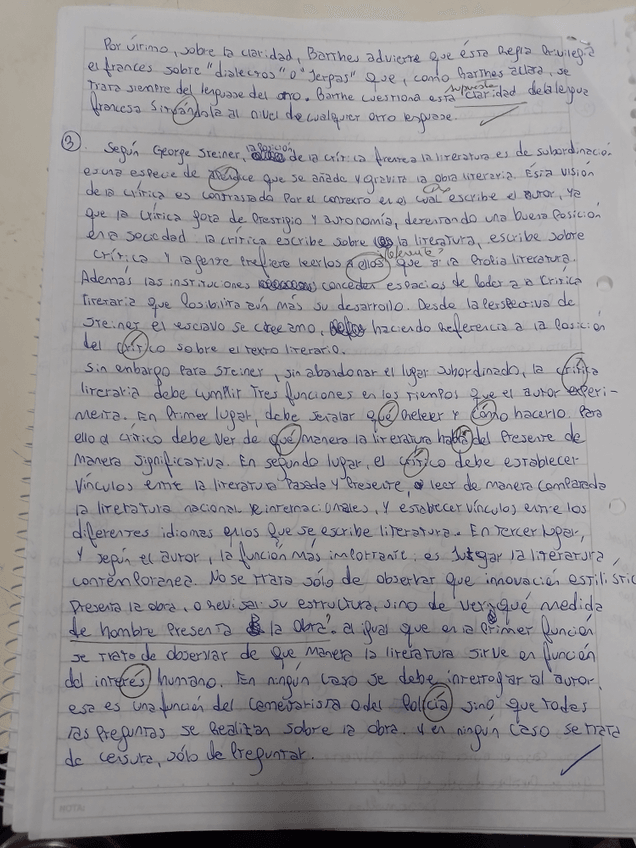 Por último, sobre la claridad, Barthes advierte que ésta Regla Privilegia
el frances sobre "dialectos" o "Jergas" que, como Barthes aclara, se
trata siempre del lenguaje del otro. Barthe cuestiona esta supuesta claridad de la lengua
francesa situándola al nivel de cualquier otro lenguaje.
3 Según George Steiner, la posición de la crítica frente a la literatura es de subordinación
es una especie de que se añade y gravita la obra literaria. Esta visión
de la crítica es contrastada Por el contexto en el cual escribe el autor, ya
que la crítica goza de Prestigio y autonomía, detentando una buena posición
en la sociedad. la crítica escribe sobre la literatura, escribe sobre
crítica y la gente Prefiere leerlos a ellos que a la Propia literatura.
Además las instituciones conceden espacios de Poder a la Crítica
literaria que Posibilita aún más su desarrollo. Desde la Perspectiva de
Steiner el esclavo se cree amo, haciendo Referencia a la Posición
del crítico sobre el texto literario.
Sin embargo Para Steiner, sin abandonar el lugar subordinado, la crítica
literaria debe cumplir tres funciones en los tiempos que el autor experi-
menta. En Primer lugar, debe señalar qué Releer y cómo hacerlo. Para
ello el crítico debe ver de qué manera la literatura habla del Presente de
manera significativa. En segundo lugar, el crítico debe establecer
vínculos entre la literatura Pasada y Presente, leer de manera comparada
la literatura nacional e internacionales, y establecer vínculos entre los
diferentes idiomas en los que se escribe literatura. En tercer lugar,
y según el autor, la función más importante: es Juzgar la literatura
contemporanea. No se trata sólo de observar que innovación estilístic
Presenta la obra, o revisar su estructura, sino de ver qué medida
de hombre Presenta la obra. al igual que en la Primer función
se trate de observar de que manera la literatura sirve en función
del interés humano. En ningún caso se debe interrogar al autor
esa es una función del o del Policía sino que todas
las Preguntas se Realizan sobre la obra. y en ningún caso se trata
de censura, sólo de Preguntar.